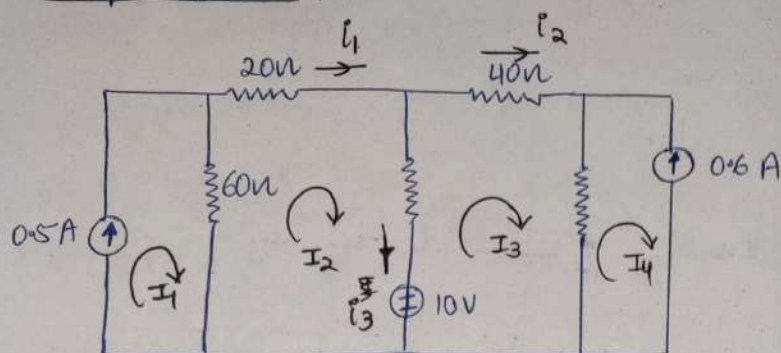 i1 i2
20Ω 40Ω
60Ω 0.6 A
0.5A I1 I2 I3 I4
i3 10V